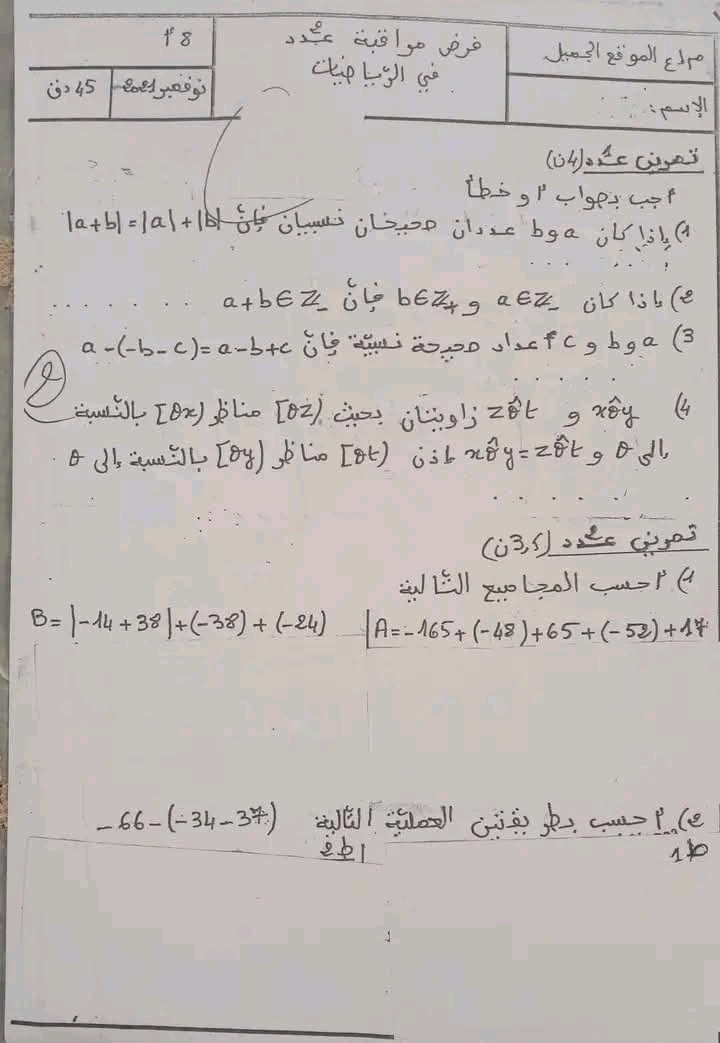 م.إع الموقع الجميل
فرض مراقبة عدد 2
في الرّياضيات
8 أ
نوفمبر 2021
45 دق
الإسم:
تمرين عدد 1 (4ن)
أجب بصواب أو خطأ
1) إذا كان a و b عددان صحيحان نسبيان فإنّ |a+b| = |a| + |b|
2) إذا كان a∈ℤ₋ و b∈ℤ₊ فإنّ a+b∈ℤ₋
3) a و b و c أعداد صحيحة نسبيّة فإنّ a-(-b-c)=a-b+c
4) xÔy و zÔt زاويتان بحيث [Oz) مناظر [Ox) بالنّسبة
إلى O و xÔy = zÔt إذن [Ot) مناظر [Oy) بالنّسبة إلى O
تمرين عدد 2 (3,5ن)
1) أحسب المجاميع التّالية
A = -165+(-48)+65+(-52)+17
B = |-14+38|+(-38)+(-24)
2) أحسب بطريقتين العمليّة التّالية -66-(-34-37)
ط1
ط2